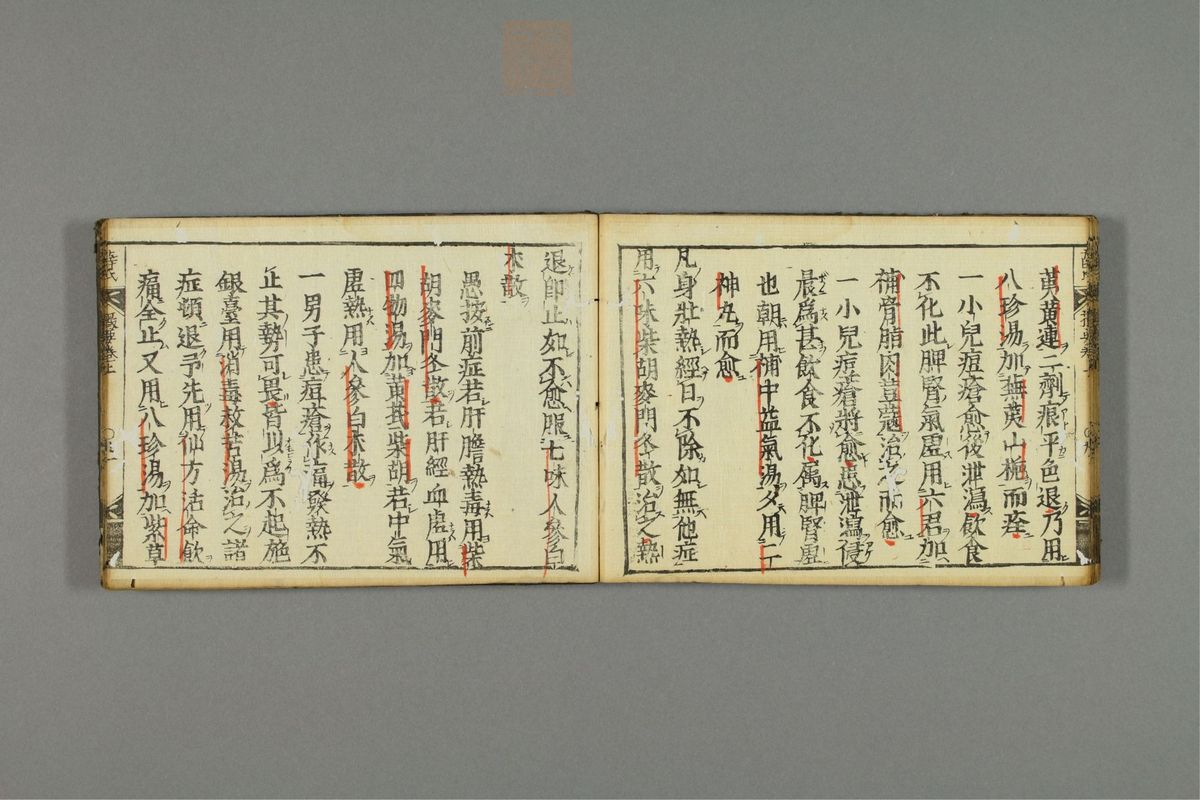 萸黄連二劑痕平色退乃用
八珍湯加蕪荑山梔而痊
一小兒痘瘡愈後泄瀉飲食
不化此脾腎氣虛用六君加
補骨脂肉荳蔻治之而愈
一小兒痘瘡將愈患泄瀉侵
晨爲甚飲食不化屬脾腎虛
也朝用補中益氣湯夕用二
神丸而愈
凡身壯熱經日不除如無他症
用六味柴胡麥門冬散治之熱
退即止如不愈服七味人參白
朮散
愚按前症若肝膽熱毒用柴
胡麥門冬散若肝經血虛用
四物湯加黄芪柴胡若中氣
虛熱用人參白朮散
一男子患痘瘡作痛發熱不
止其勢可畏皆以爲不起施
銀臺用消毒救苦湯治之諸
症頓退予先用仙方活命飲
痛全止又用八珍湯加紫草